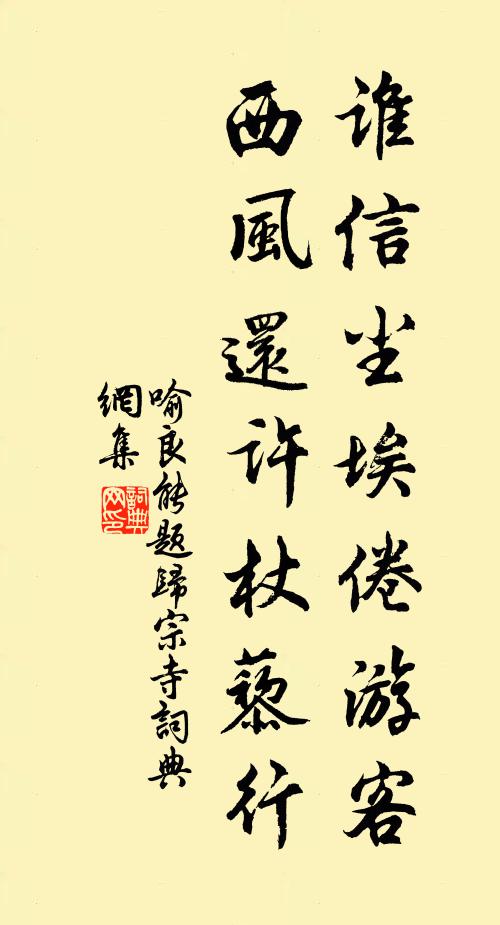 谁信尘埃倦游客
西風還许杖藜行
喻良能题歸宗寺詞典
網集
詞典
网印